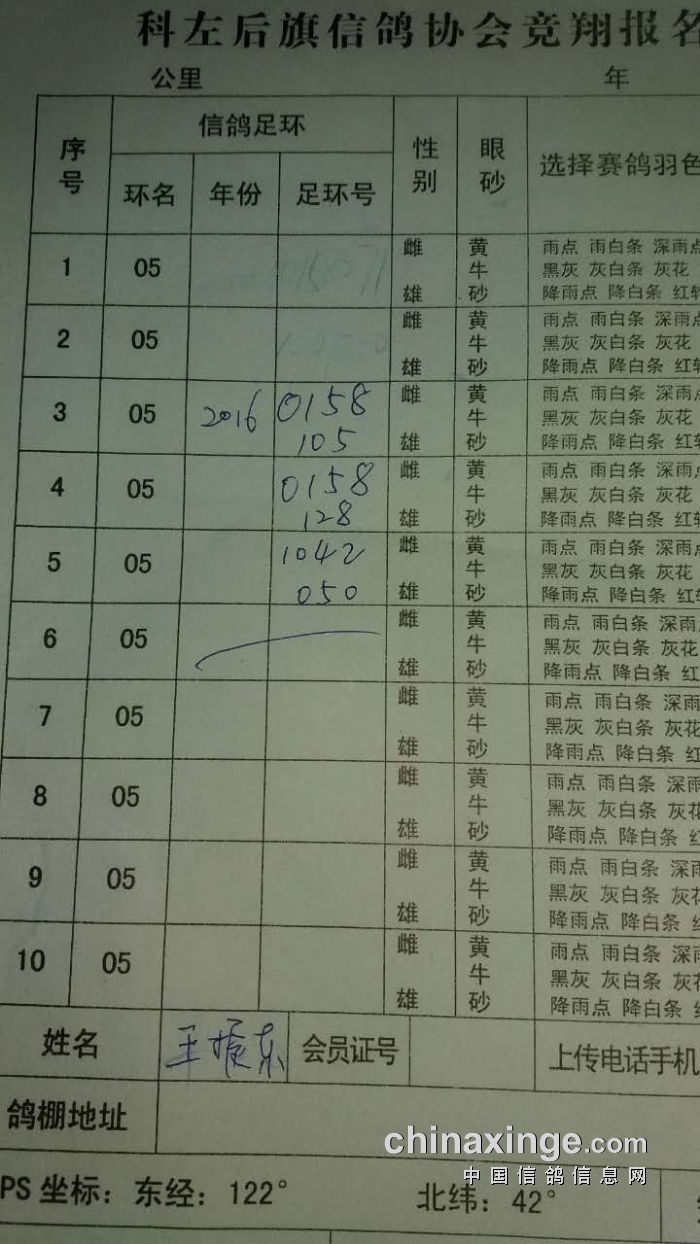 科左后旗信鸽协会竞翔报名
公里 年
序号 信鸽足环 性别 眼砂 选择赛鸽羽色
环名 年份 足环号
1 05 雌 雄 黄牛砂 雨点 雨白条 深雨点
黑灰 灰白条 灰花
降雨点 降白条 红轮
2 05 雌 雄 黄牛砂 雨点 雨白条 深雨点
黑灰 灰白条 灰花
降雨点 降白条 红轮
3 05 2016 0158 雌 雄 黄牛砂 雨点 雨白条 深雨点
105 黑灰 灰白条 灰花
降雨点 降白条 红轮
4 05 0158 雌 雄 黄牛砂 雨点 雨白条 深雨点
128 黑灰 灰白条 灰花
降雨点 降白条 红轮
5 05 1042 雌 雄 黄牛砂 雨点 雨白条 深雨点
050 黑灰 灰白条 灰花
降雨点 降白条 红轮
6 05 雌 雄 黄牛砂 雨点 雨白条 深雨
黑灰 灰白条 灰花
降雨点 降白条 红
7 05 雌 雄 黄牛砂 雨点 雨白条 深雨
黑灰 灰白条 灰花
降雨点 降白条 红
8 05 雌 雄 黄牛砂 雨点 雨白条 深雨
黑灰 灰白条 灰花
降雨点 降白条 红
9 05 雌 雄 黄牛砂 雨点 雨白条 深雨
黑灰 灰白条 灰花
降雨点 降白条 红
10 05 雌 雄 黄牛砂 雨点 雨白条 深雨
黑灰 灰白条 灰花
降雨点 降白条 红
姓名 王振东 会员证号 上传电话手机
鸽棚地址
chinaxinge.com
中国信鸽信息网
PS 坐标：东经：122° 北纬：42°